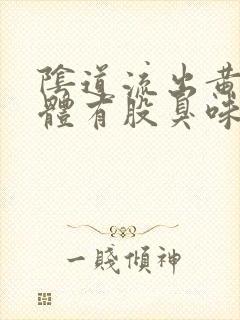 陰道流出黃
體有股臭味
一賤傾神